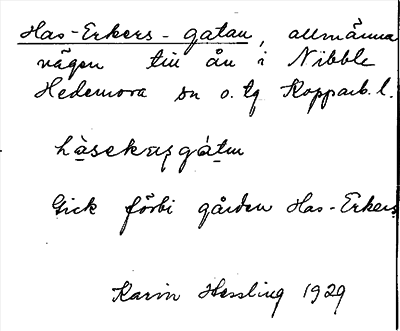 Has-Erkers-gatan, allmänna
vägen till ån i Nibble
Hedemora sn o. tg Kopparb. l.
Gick förbi gården Has-Erkers
Karin Hessling 1929